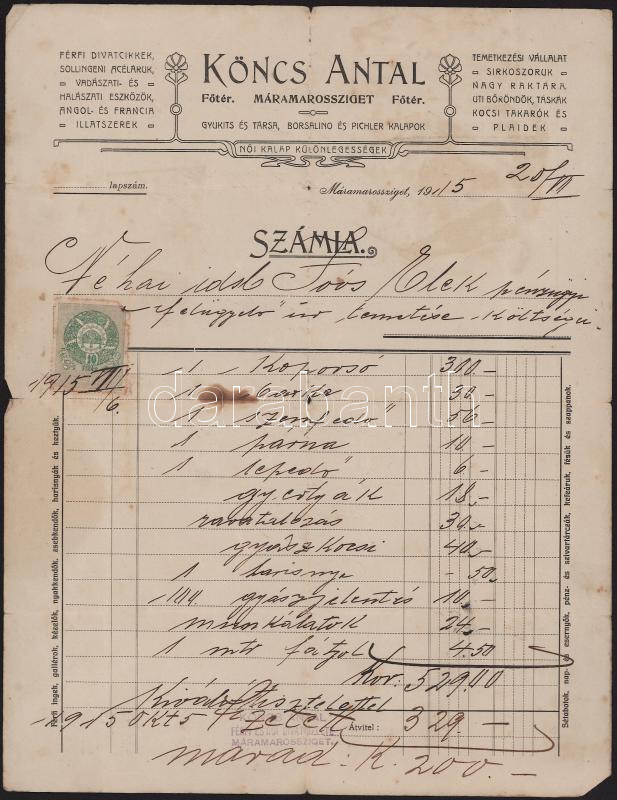 FÉRFI DIVATCIKKEK,
SOLLINGENI ACÉLÁRUK,
VADÁSZATI- ÉS
HALÁSZATI ESZKÖZÖK,
ANGOL- ÉS FRANCIA
ILLATSZEREK
KÖNCS ANTAL
Főtér. MÁRAMAROSSZIGET Főtér.
GYUKITS ÉS TÁRSA, BORSALINO ÉS PICHLER KALAPOK
NŐI KALAP KÜLÖNLEGESSÉGEK
TEMETKEZÉSI VÁLLALAT
SIRKOSZORUK
NAGY RAKTÁRA.
UTI BŐRÖNDÖK, TÁSKÁK
KOCSI TAKARÓK ÉS
PLAIDEK
lapszám.
Máramarossziget, 1915 20/VI
SZÁMLA.
Néhai idsb Soós Elek pénzügyi
felügyelő úr temetése költségei
10
1915 III/6.
1 Koporsó 300.-
1 30.-
1 szemfedő 50.-
1 párna 10.-
1 lepedő 6.-
gyertyák 18.-
ravatalozás 30.-
gyászkocsi 40.-
1 harisnya -50.
100. gyászjelentés 10.-
munkálatok 24.-
1 mtr fátyol 4.50
Kor: 529.00
Kiváló tisztelettel
1915 Okt 5 fizetett
Átvitel: 329.-
KÖNCS ANTAL
FÉRFI ÉS NŐI DIVATÜZLETE
MÁRAMAROSSZIGET.
marad K. 200.-
Férfi ingek, gallérok, kézelők, nyakkendők, zsebkendők, harisnyák és keztyűk.
Sétabotok, nap- és esernyők, pénz- és szivartárczák, kefeáruk, fésűk és szappanok.
darabanth